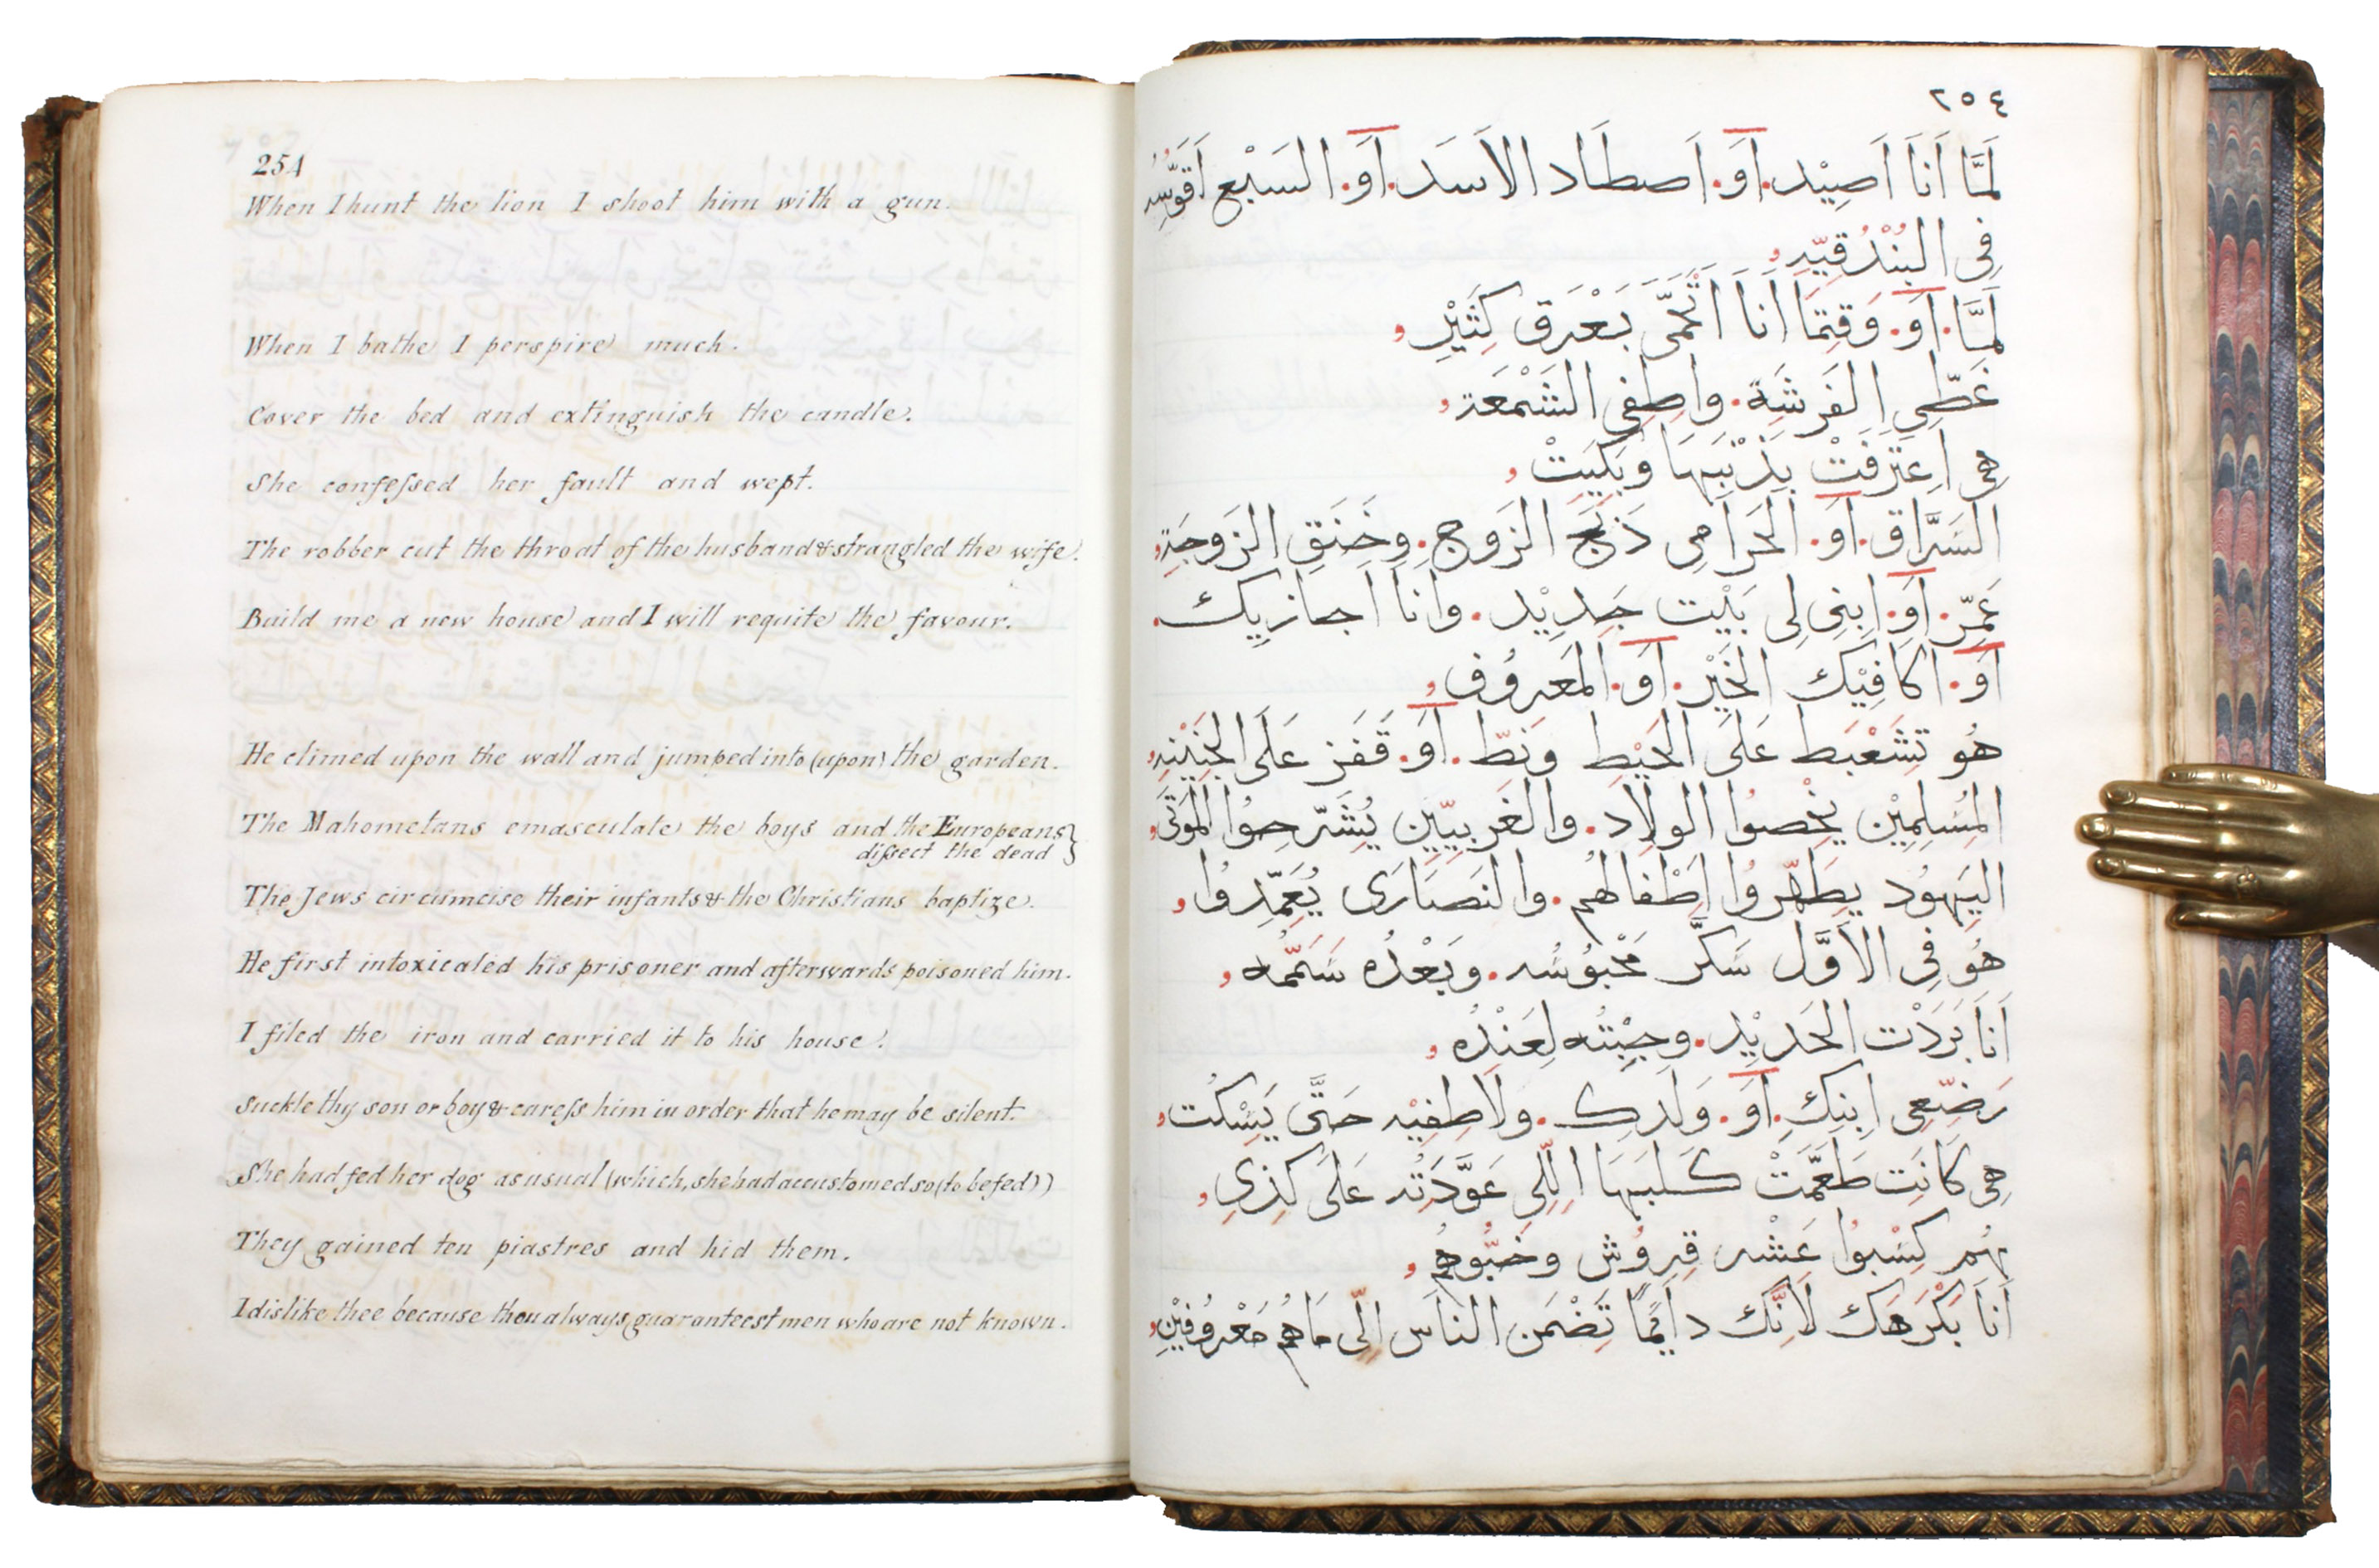 254
When I hunt the lion I shoot him with a gun.
When I bathe I perspire much.
Cover the bed and extinguish the candle.
She confeſsed her fault and wept.
The robber cut the throat of the husband & strangled the wife.
Build me a new house and I will requite the favour.
He climed upon the wall and jumped into (upon) the garden.
The Mahometans emasculate the boys and the Europeans}
diſsect the dead
The Jews circumcise their infants & the Christians baptize.
He first intoxicated his prisoner and afterwards poisoned him.
I filed the iron and carried it to his house.
Suckle thy son or boy & careſs him in order that he may be silent.
She had fed her dog as usual (which, she had accustomed so (to be fed))
They gained ten piastres and hid them.
I dislike thee because thou always guaranteest men who are not known.
٢٥٤
لَمَّا اَنَا اَصِيْد. اَو. اَصطَاد الاَسَد. اَو. السَبْع اَقَوِّسُه
فِى البُنْدُقِيِّه
لَمَّا. اَو. وَقِتمَا اَنَا اَتْحَمَّى بَعْرَق كَثِيْر
غَطِّي الفَرشَة. واطِفِي الشَمْعَة
هِى اعتَرَفَتْ بِذَنْبَهَا وبَكِيَتْ
السَرَّاق. اَو. الحَرَامِى ذَبَح الزَوج. وخَنَق الزَوجَة
عَمِّر. اَو. ابنِى لِى بَيْت جَدِيْد. وانَا اجازِيك.
اَو. اكَافِيْك الخَيْر. اَو. المَعرُوف
هُو تشَعْبَط عَلَى الحَيْط ونَطّ. اَو. قَفَز عَلَى الجنَيْنِه
المُسلِمِيْن يِخْصوا الولاد. والغَربِيِّين يُشَرّحوا المَوتَى
اليَهُود يِطَهّرُوا اِطْفالهُم. والنَصَارَى يُعَمِّدُوا
هُو فِى الاَوَّل سَكَّر مَحْبُوسُه. وبَعْدُه سَمَّمُه
اَنَا بَرَدْت الحَدِيْد. وجِبْتُه لِعَنْدُه
رَضِّعِى اِبنِك. اَو. وَلَدِك. ولاطِفِيْه حَتَّى يَسْكُت
هِى كَانَت طَعَّمَتْ كَلبَهَا اللِّى عَوَّدَتُه عَلَى كَذِى
هُم كِسْبُوا عَشْر قِرُوش وخَبُّوهُم
اَنَا بَكْرَهَك لَانَّك دايمًا تَضْمَن النَاس الِّى مَا هُم مَعْرُوفِيْن